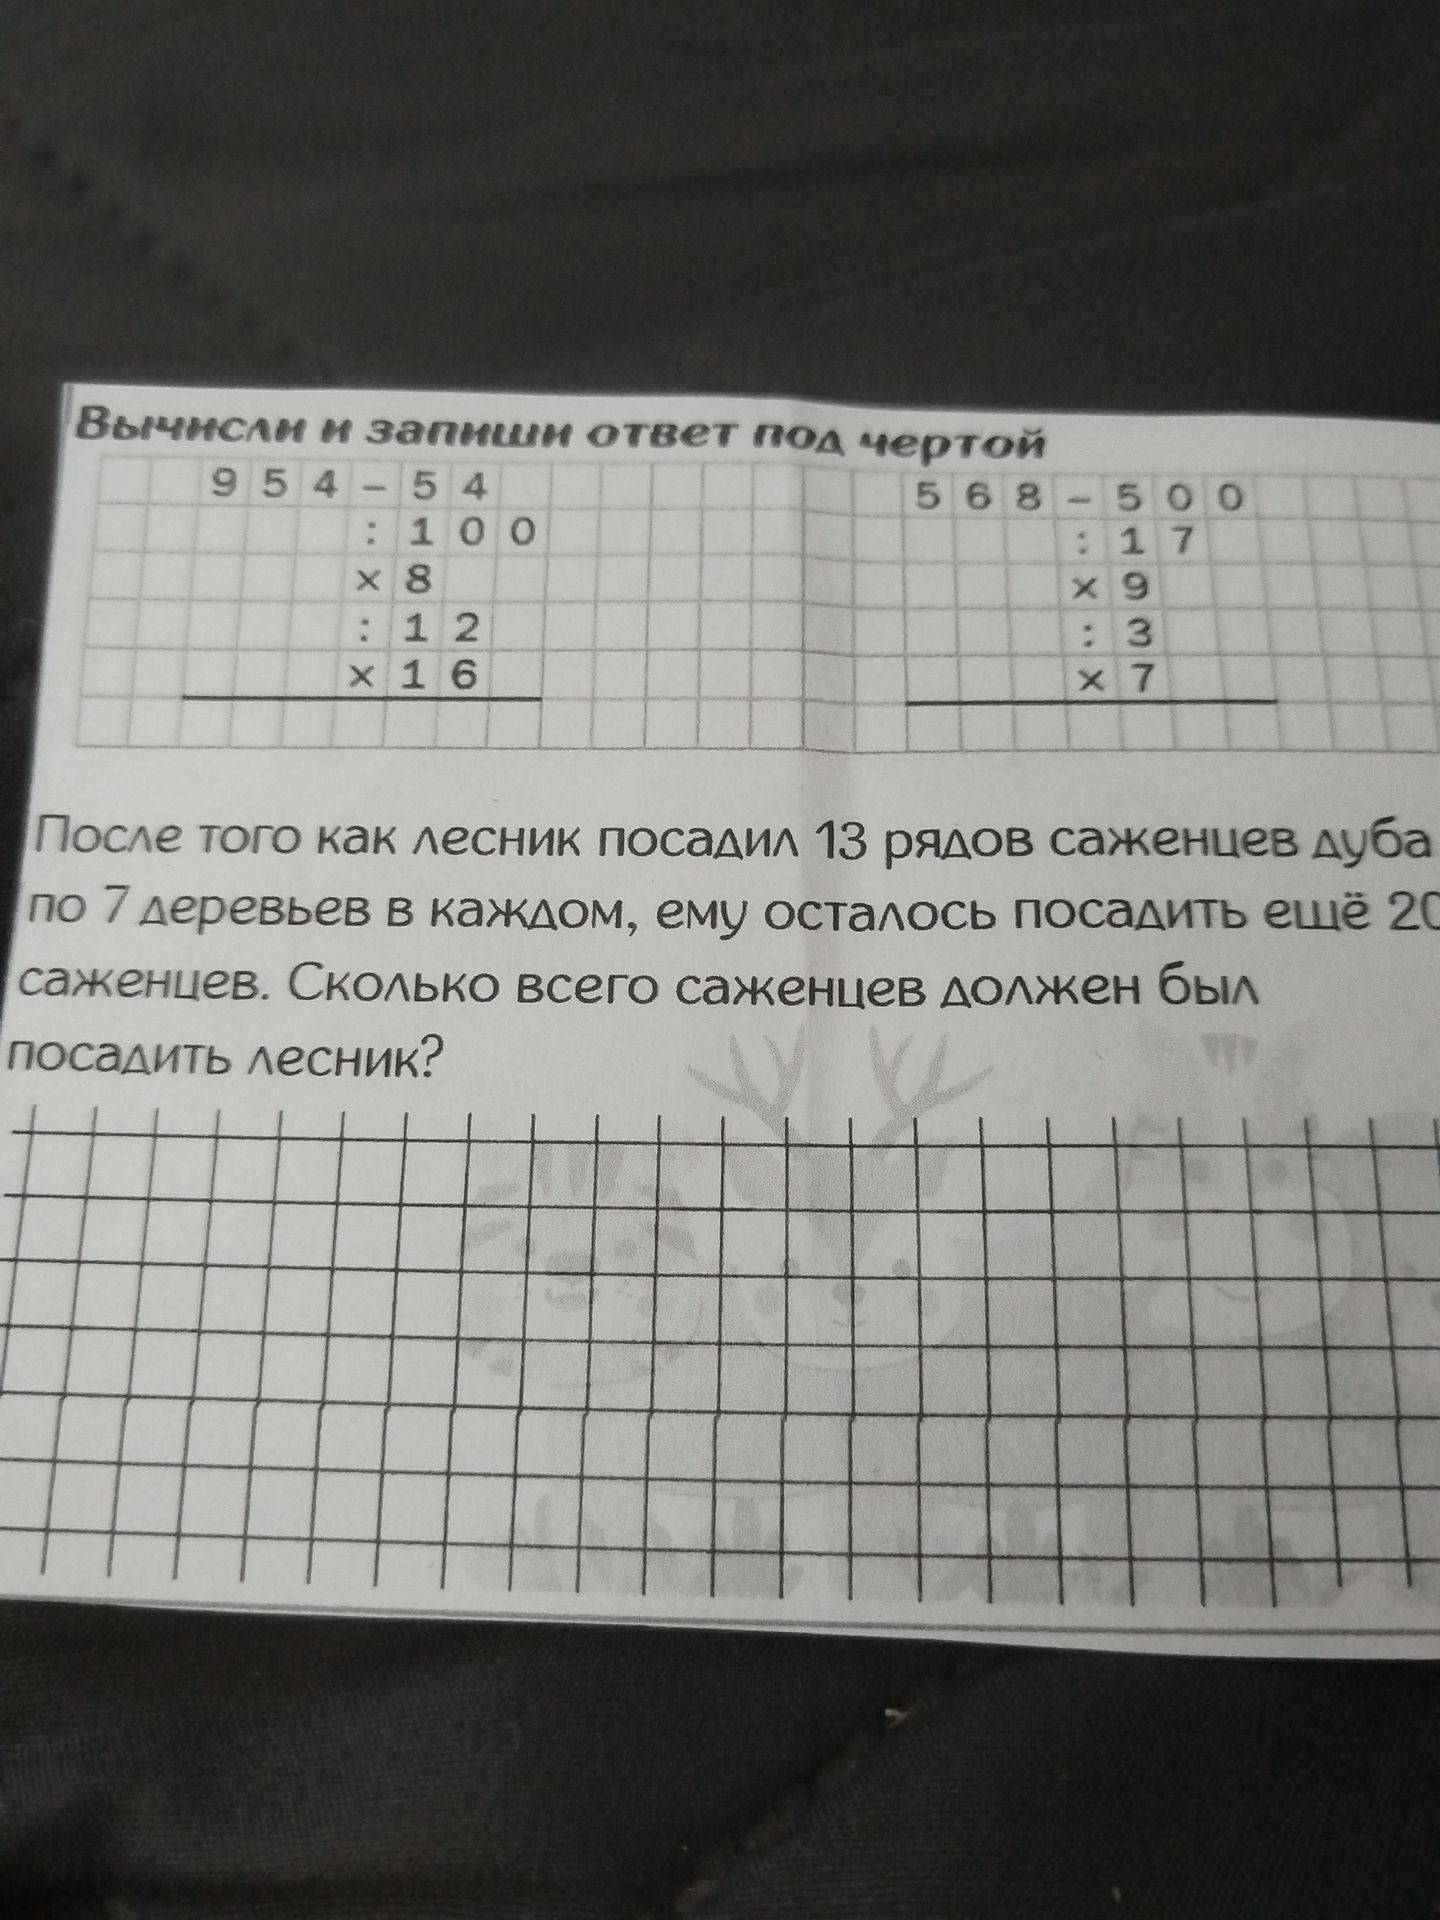 Вычисли и запиши ответ под чертой
954-54
:100
×8
:12
×16
568-500
:17
×9
:3
×7
После того как лесник посадил 13 рядов саженцев дуба
по 7 деревьев в каждом, ему осталось посадить ещё
саженцев. Сколько всего саженцев должен был
посадить лесник?